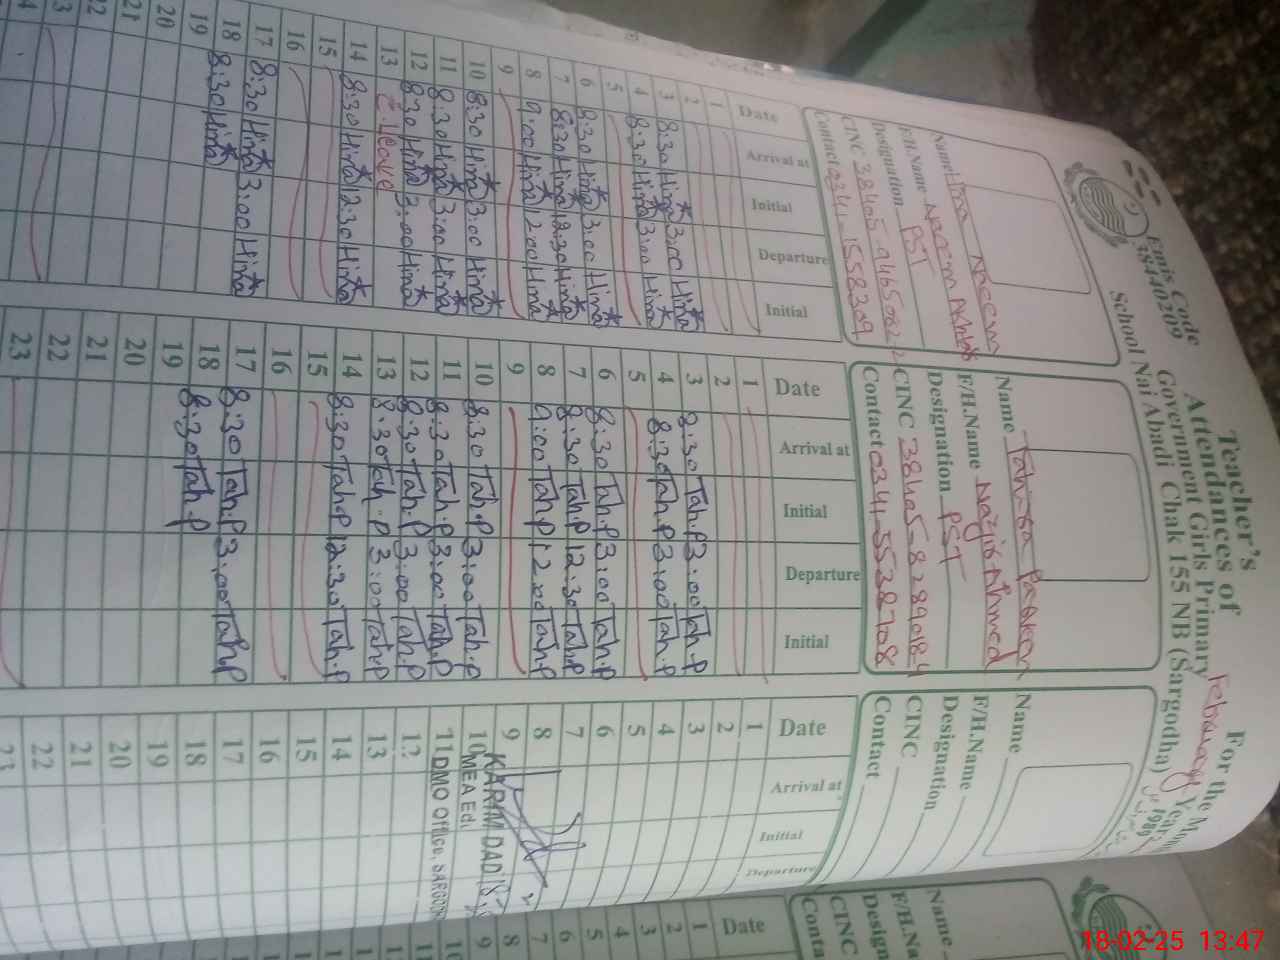 Emis Code
38440209
Teacher's
Attendances of
Government Girls Primary
School Nai Abadi Chak 155 NB (Sargodha)
For the
Year
Name Hina Naeem
F/H.Name Naeem
Designation PST
CINC
Contact 0341-1558309
Date Arrival at Initial Departure Initial
1
2
3 8:30 Hina 3:00 Hina
4 8:30 Hina 3:00 Hina
5
6 8:30 Hina 3:00 Hina
7 8:30 Hina 12:30 Hina
8 9:00 Hina 12:00 Hina
9
10 8:30 Hina 3:00 Hina
11 8:30 Hina 3:00 Hina
12 8:30 Hina 3:00 Hina
13 C.leave
14 8:30 Hina 12:30 Hina
15
16
17 8:30 Hina 3:00 Hina
18 8:30 Hina
19
20
21
22
Name
F/H.Name Ahmed
Designation PST
CINC
Contact 0341-5538708
Date Arrival at Initial Departure Initial
1
2
3 8:30 Tah.P 3:00 Tah.P
4 8:30 Tah.P 3:00 Tah.P
5
6 8:30 Tah.P 3:00 Tah.P
7 8:30 Tah.P 12:30 Tah.P
8 9:00 Tah.P 12:00 Tah.P
9
10 8:30 Tah.P 3:00 Tah.P
11 8:30 Tah.P 3:00 Tah.P
12 8:30 Tah.P 3:00 Tah.P
13 8:30 Tah.P 3:00 Tah.P
14 8:30 Tah.P 12:30 Tah.P
15
16
17 8:30 Tah.P 3:00 Tah.P
18 8:30 Tah.P
19
20
21
22
23
Name
F/H.Name
Designation
CINC
Contact
Date Arrival at Initial Departure
1
2
3
4
5
6
7
8
9 KARIM DAD
10 MEA Ed:
11 DMO Office,
12
13
14
15
16
17
18
19
20
21
22
23
Name
CINC
Date
1
2
3
4
5
6
7
8
9
10
18-02-25 13:47